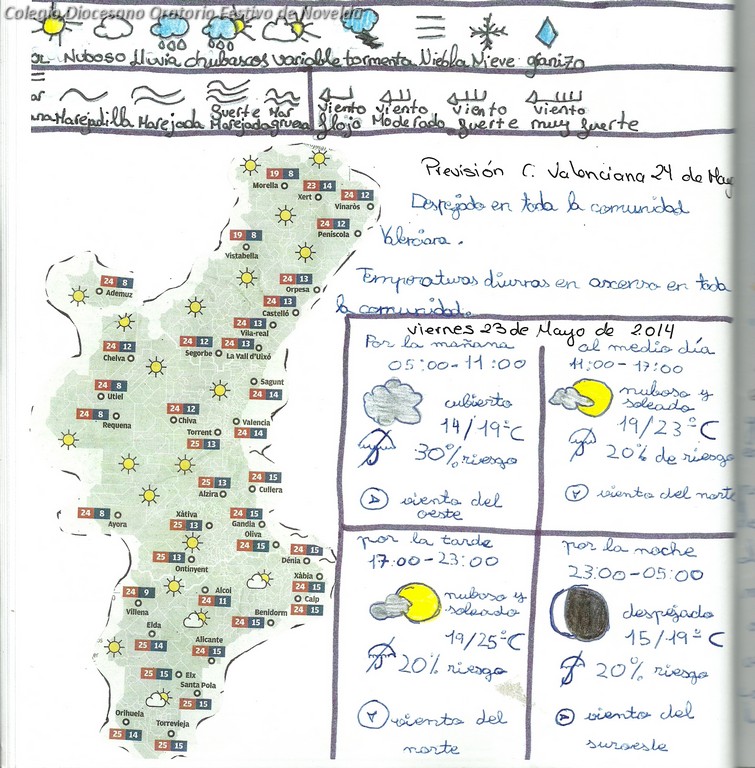 Colegio Diocesano Oratorio Festivo de Novelda
Nuboso lluvia chubascos variable tormenta Niebla Nieve granizo
Marejadilla Marejada Fuerte Marejada Mar gruesa
Viento flojo
viento Moderado
viento fuerte
viento muy fuerte
Previsión C. Valenciana 24 de May
Despejado en toda la comunidad
Valenciana.
Temperaturas diurnas en ascenso en toda
la comunidad.
19 8
Morella
23 14
Xert
24 12
Vinaròs
24 12
Peníscola
19 8
Vistabella
24 13
Orpesa
24 8
Ademuz
24 13
Castelló
24 13
Vila-real
24 12
Chelva
24 12
Segorbe
24 13
La Vall d'Uixó
24 8
Utiel
Sagunt
24 14
24 8
Requena
24 12
Chiva
Torrent
25 13
Valencia
24 14
25 13
Alzira
24 15
Cullera
24 8
Ayora
Xàtiva
25 13
24 15
Gandia
Oliva
24 15
25 13
Ontinyent
24 15
Dénia
Xàbia
24 15
Calp
24 15
24 9
Villena
Alcoi
24 11
Benidorm
24 15
Elda
25 14
Alicante
24 15
25 15
Elx
Santa Pola
25 15
Orihuela
25 14
Torrevieja
25 15
viernes 23 de Mayo de 2014
Por la mañana
05:00-11:00
cubierto
14/19ºC
30% riesgo
viento del
oeste
al medio día
11:00-17:00
nuboso y
soleado
19/23ºC
20% de riesgo
viento del norte
por la tarde
17:00-23:00
nuboso y
soleado
19/25ºC
20% riesgo
viento del
norte
por la noche
23:00-05:00
despejado
15/19ºC
20% riesgo
viento del
suroeste